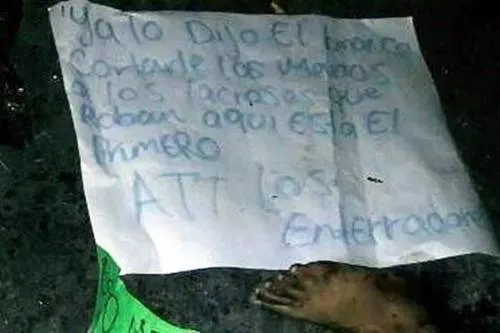 Ya lo Dijo El bronco
Cortarle las manos
a los laciosos que
Roban aqui Esta El
PRIMERO
ATT. Los
Enderrador